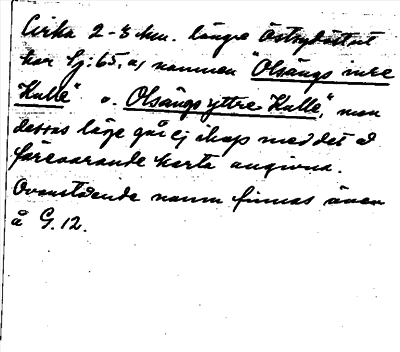 Cirka 2-3 km. längre östsydöstut
har Sj: 65, a, namnen "Olsängs inre
Kulle" o. Olsängs yttre Kulle", men
deras läge går ej ihop med det å
förevarande karta angivna.
Ovanstående namn finnas även
å G. 12.